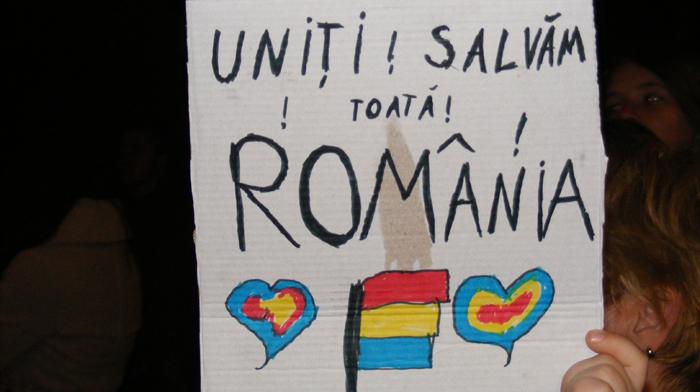 UNIȚI! SALVĂM
! TOATĂ!
ROMÂNIA!